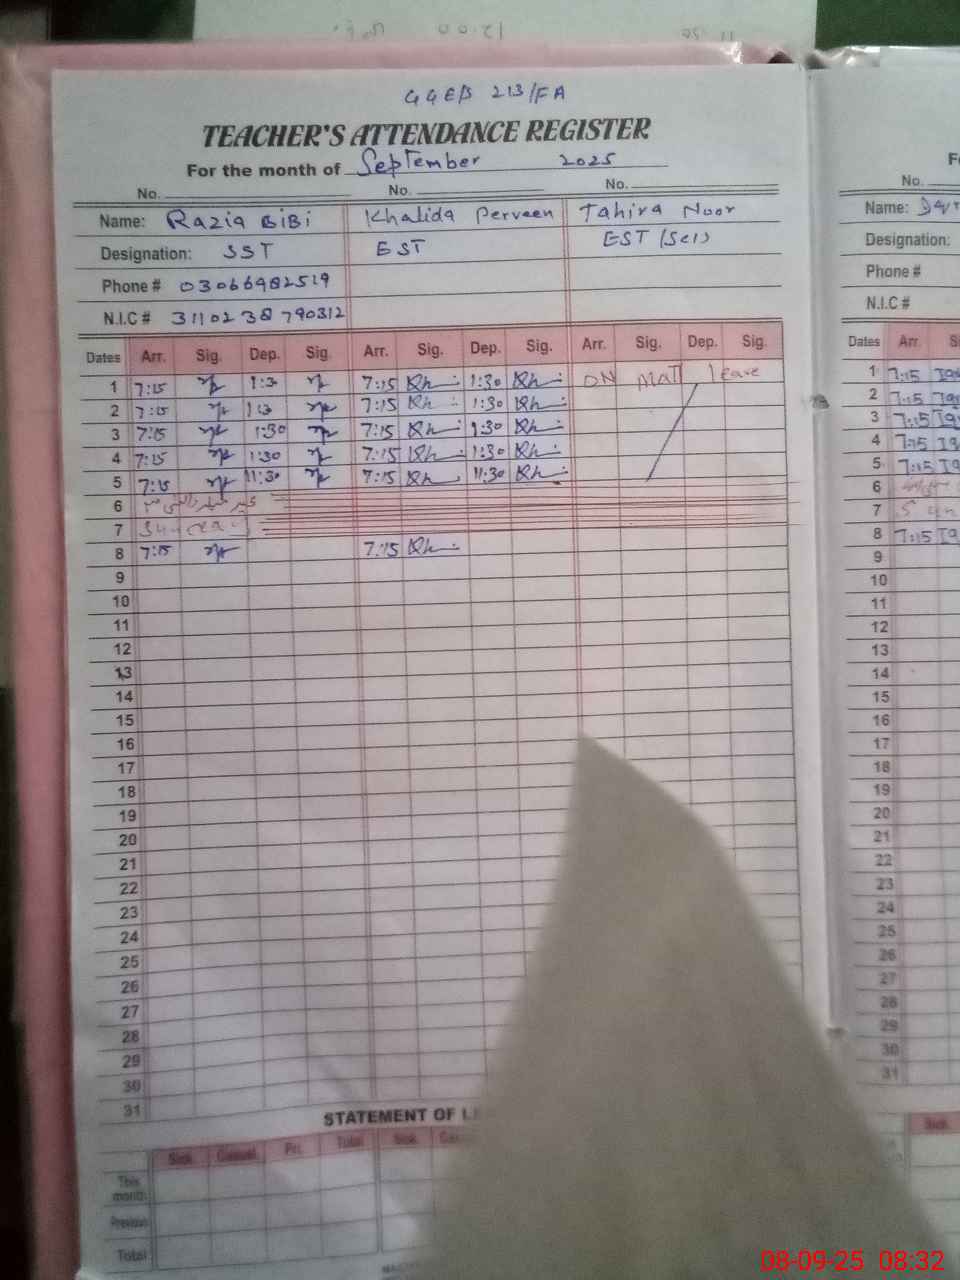 G G E/S 213/FA
TEACHER'S ATTENDANCE REGISTER
For the month of September 2025
No. No. No.
Name: Razia BiBi Khalida Perveen Tahira Noor
Designation: SST EST EST (Sci)
Phone # 03066982519
N.I.C # 31102 38 790312
Dates Arr. Sig. Dep. Sig. Arr. Sig. Dep. Sig. Arr. Sig. Dep. Sig.
1 7:15 1:3 7:15 Kh 1:30 Kh ON MAT leave
2 7:15 1:3 7:15 Kh 1:30 Kh
3 7:15 1:30 7:15 Kh 1:30 Kh
4 7:15 1:30 7:15 Kh 1:30 Kh
5 7:15 11:30 7:15 Kh 11:30 Kh
6
7 Sunday
8 7:15 7:15 Kh
9
10
11
12
13
14
15
16
17
18
19
20
21
22
23
24
25
26
27
28
29
30
31
STATEMENT OF
Sick Casual Pri. Total Sick
This month
Previous
Total
No.
Name:
Designation:
Phone #
N.I.C #
Dates Arr.
1 7:15
2 7:15
3 7:15
4 7:15
5 7:15
6
7
8 7:15
9
10
11
12
13
14
15
16
17
18
19
20
21
22
23
24
25
26
27
28
29
30
31
Sick
08-09-25 08:32